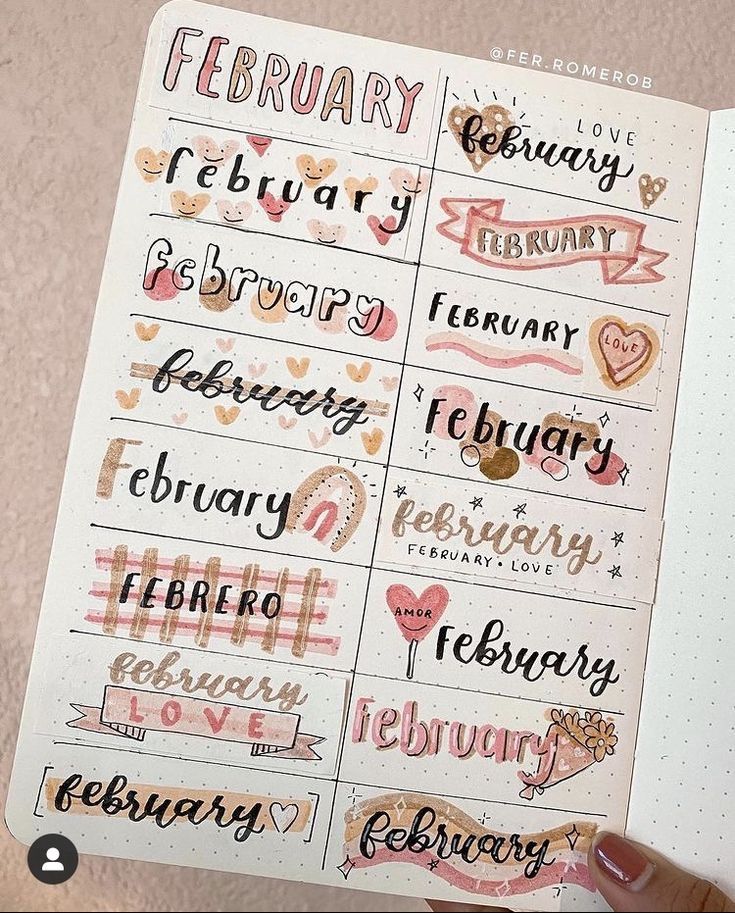 @FER.ROMEROB
FEBRUARY
february
february
february
February
FEBRERO
february
LOVE
february
LOVE
february
FEBRUARY
FEBRUARY
LOVE
February
february
FEBRUARY • LOVE
AMOR
February
February
february